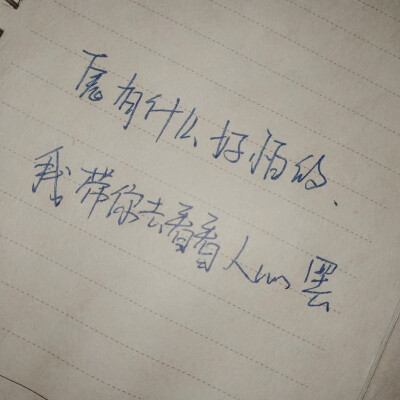 鬼有什么好怕的、
我带你去看看人心罢